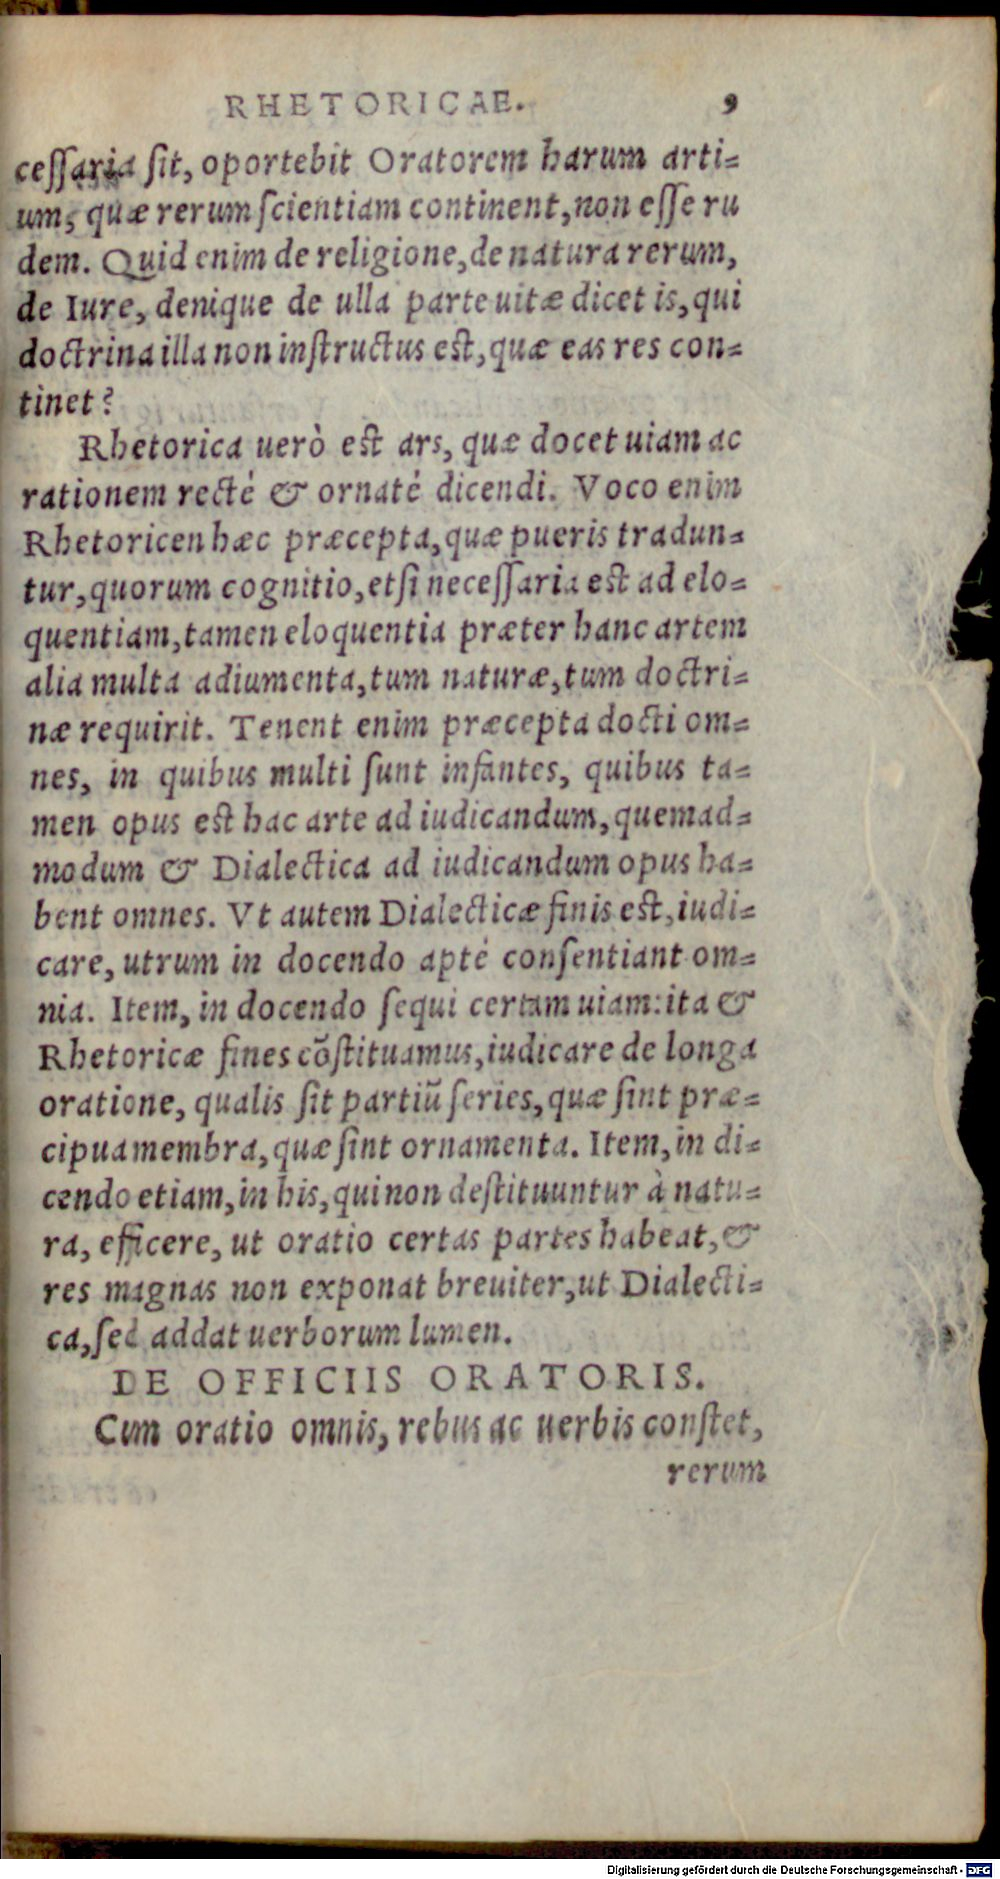 RHETORICAE. 9
ceſſaria ſit, oportebit Oratorem harum arti=
um, quæ rerum ſcientiam continent, non eſſe ru
dem. Quid enim de religione, de natura rerum,
de Iure, denique de ulla parte uitæ dicet is, qui
doctrina illa non inſtructus eſt, quæ eas res con=
tinet?
Rhetorica uerò eſt ars, quæ docet uiam ac
rationem recté & ornaté dicendi. Voco enim
Rhetoricen hæc præcepta, quæ pueris tradun=
tur, quorum cognitio, etſi neceſſaria eſt ad elo=
quentiam, tamen eloquentia præter hanc artem
alia multa adiumenta, tum naturæ, tum doctri=
næ requirit. Tenent enim præcepta docti om=
nes, in quibus multi ſunt infantes, quibus ta=
men opus eſt hac arte ad iudicandum, quemad=
modum & Dialectica ad iudicandum opus ha=
bent omnes. Vt autem Dialecticæ finis eſt, iudi=
care, utrum in docendo apté conſentiant om=
nia. Item, in docendo ſequi certam uiam: ita &
Rhetoricæ fines cõſtituamus, iudicare de longa
oratione, qualis ſit partiũ ſeries, quæ ſint præ=
cipua membra, quæ ſint ornamenta. Item, in di=
cendo etiam, in his, qui non deſtituuntur à natu=
ra, efficere, ut oratio certas partes habeat, &
res magnas non exponat breuiter, ut Dialecti=
ca, ſed addat uerborum lumen.
DE OFFICIIS ORATORIS.
Cum oratio omnis, rebus ac uerbis conſtet,
rerum
Digitalisierung gefördert durch die Deutsche Forschungsgemeinschaft - DFG